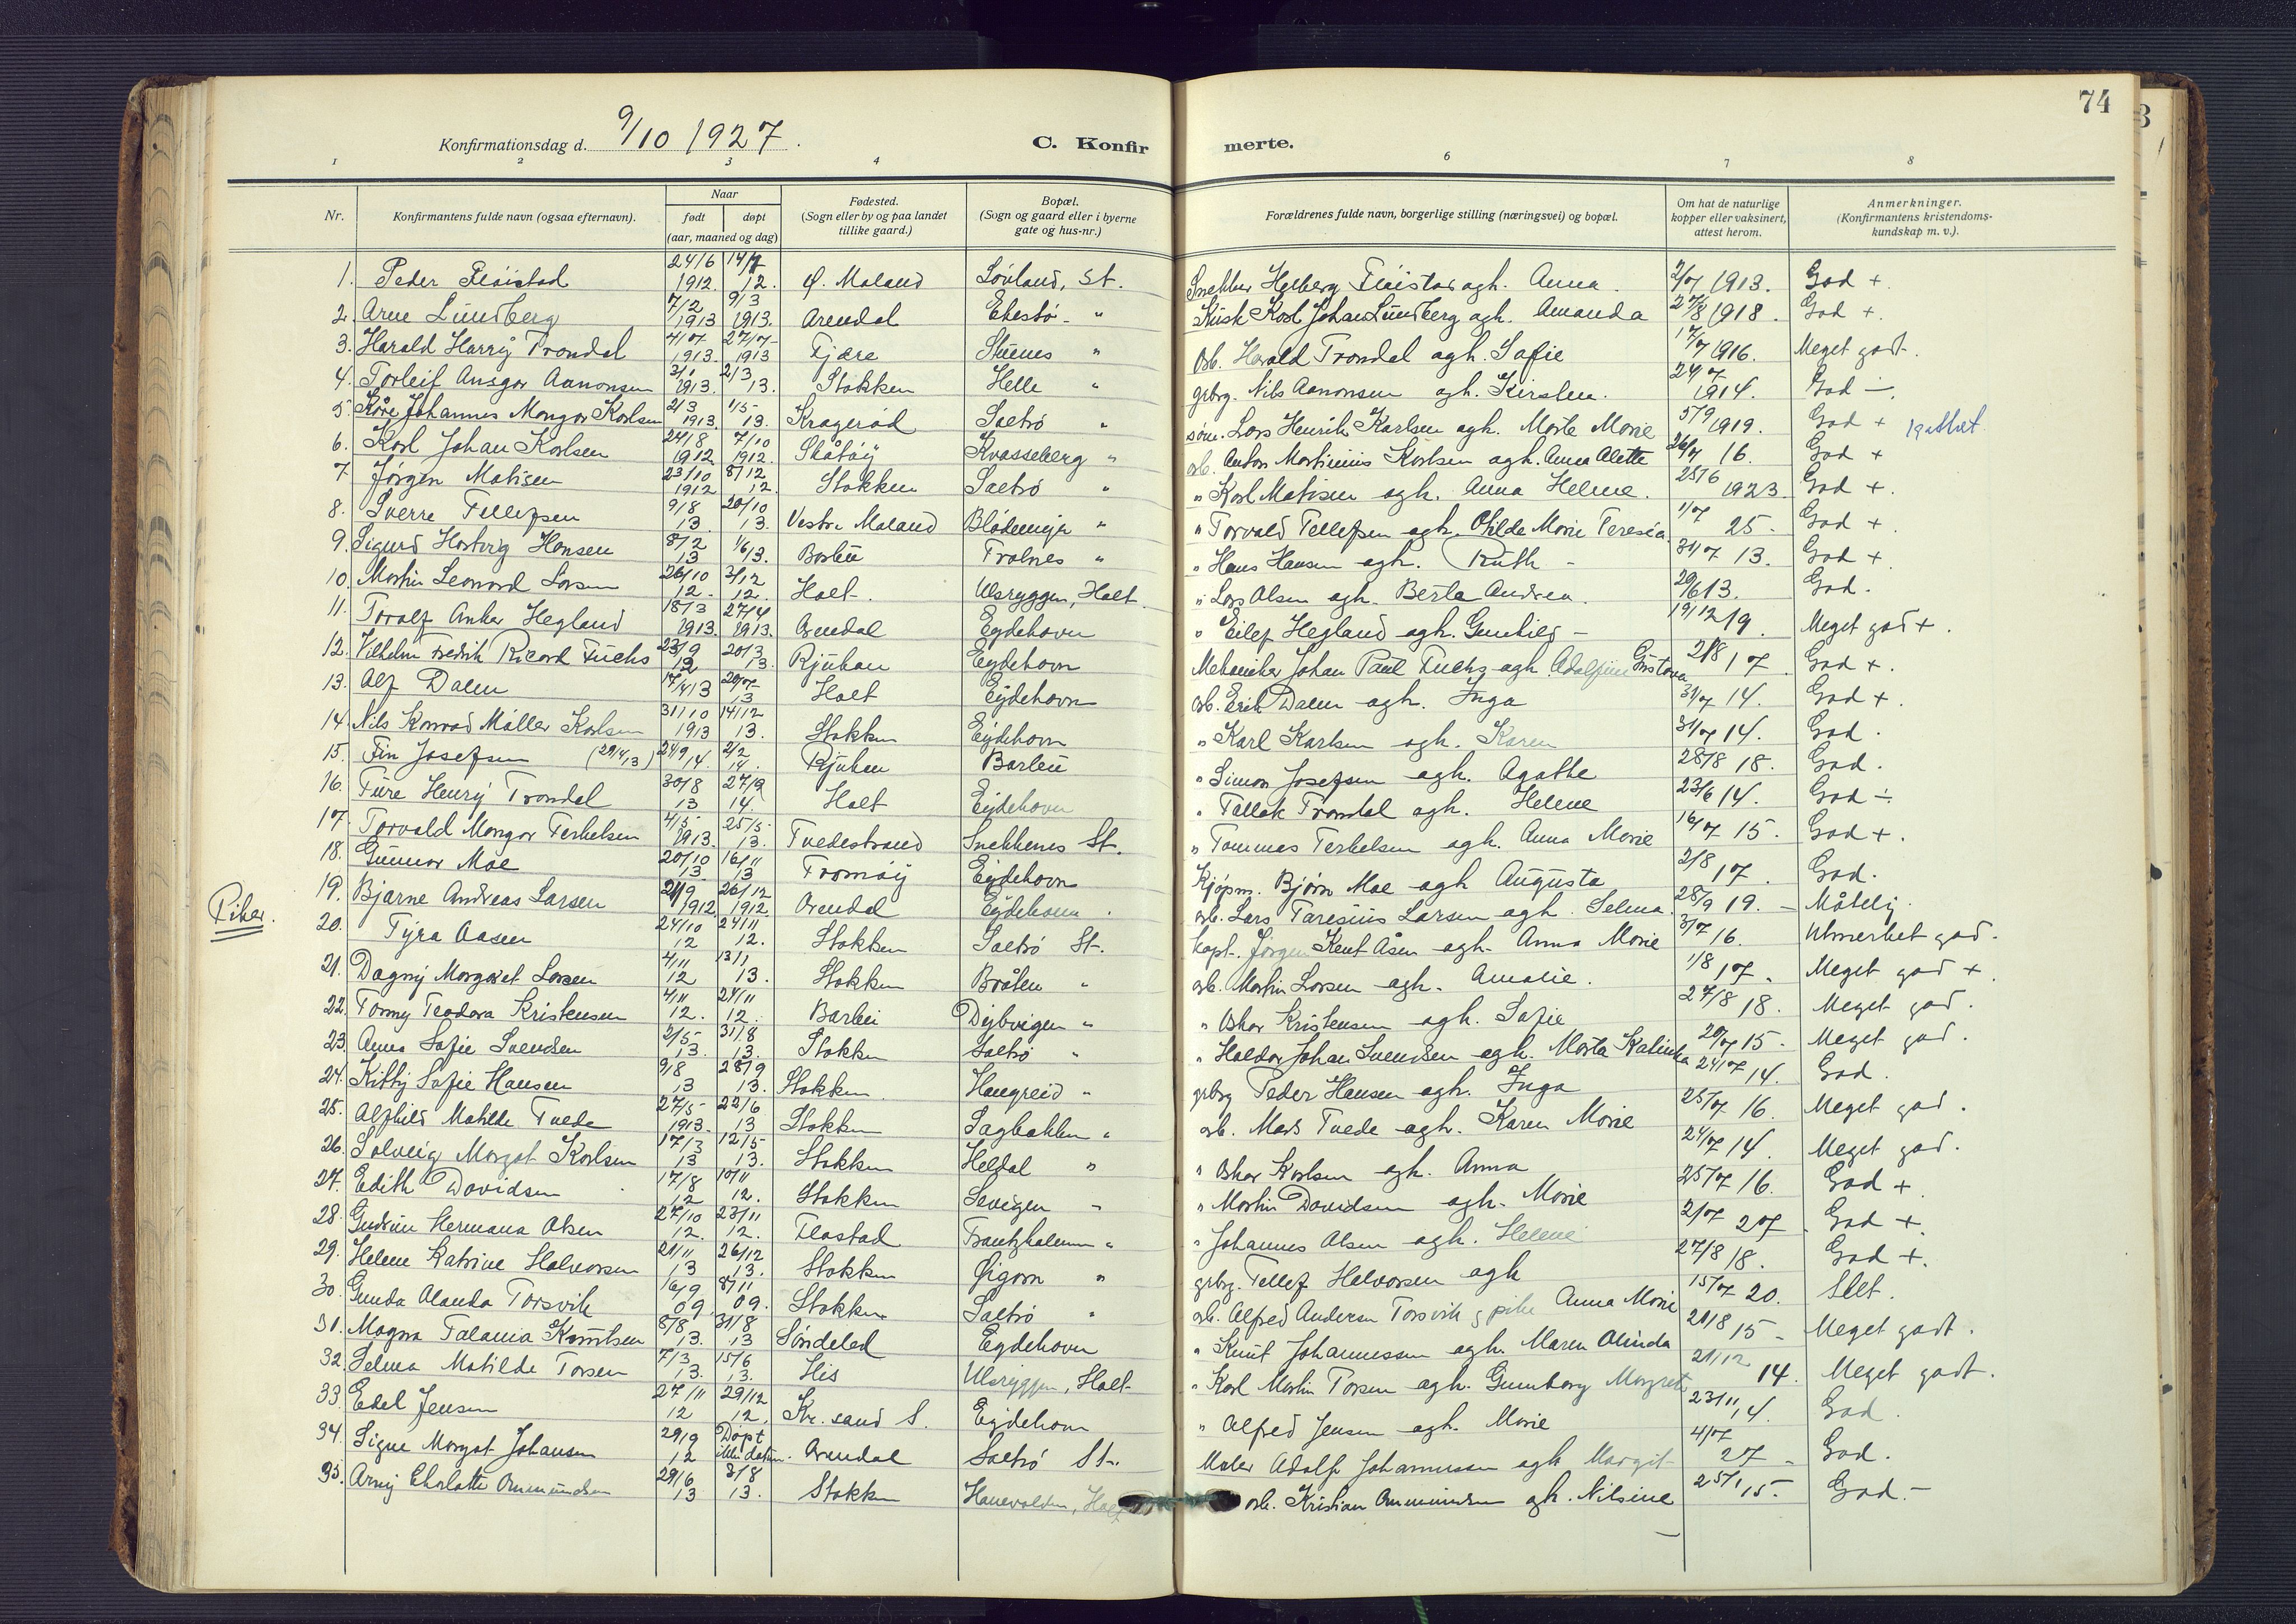 74
Konfirmationsdag d. 9/10 1927. C. Konfirmerte.
1 2 3 4 6 7 8
Nr. Konfirmantens fulde navn (ogsaa efternavn). Naar født døpt (aar, maaned og dag) Fødested. (Sogn eller by og paa landet tillike gaard.) Bopæl. (Sogn og gaard eller i byerne gate og hus-nr.) Forældrenes fulde navn, borgerlige stilling (næringsvei) og bopæl. Om hat de naturlige kopper eller vaksinert, attest herom. Anmerkninger. (Konfirmantens kristendoms-kundskap m. v.).
1. Peder Fløistad 24/6 1912. 14/7 12. Ø. Moland Løvland, St. Snekker Helberg Fløistad agh. Anna. 2/7 1913. God +
2. Arne Lundberg 7/2 1913 9/3 1913. Arendal Ekestø " Karl Johan Lundberg agh. Amanda 27/8 1918. God +.
3. Harald Harry Trondal 4/7 1913. 27/7 1913 Fjære Stuenes " arb. Harald Trondal agh. Sofie 17/7 1916. Meget godt.
4. Torleif Ansgar Aanonsen 3/1 1913. 2/3 13. Stokken Helle " grbrg. Nils Aanonsen agh. Kirsten. 24/7 1914. God ÷.
5. Kåre Johannes Mongor Karlsen 2/3 1913. 1/5 13. Kragerød Saltrø " søm. Lars Henrik Karlsen agh. Marte Marie 5/9 1919. God +
6. Karl Johan Karlsen 24/8 1912 7/10 1912. Skåtøy Kvasseberg " arb. Anton Martinius Karlsen agh. Anna Alette 26/7 16. God +
7. Jørgen Matisen 23/10 1912 8/12 12. Stokken Saltrø " " Karl Matisen agh. Anna Helene. 25/6 1923. God +.
8. Sverre Tellefsen 9/8 13. 20/10 13. Vestre Moland Blødemyr " " Torvald Tellefsen agh. Otilde Marie Teresia. 1/7 25. God +.
9. Sigurd Hartvig Hansen 8/2 13 1/6 13. Barbu Tralnes " " Hans Hansen agh. Ruth - 31/7 13. God +
10. Martin Leonard Larsen 26/10 12. 3/12 12. Holt. Ulsryggen, Holt. " Lars Olsen agh. Berte Andrea. 20/6 13. God.
11. Toralf Anker Hegland 18/3 1913. 27/4 1913. Arendal Eydehavn " Eilef Hegland agh. Gunhild - 19/12 19. Meget god +.
12. Vilhelm Fredrik Ricard Fuchs 23/9 12 20/3 13. Rjukan Eydehavn Mekaniker Johan Paul Fuchs agh. Adolfine Gustava 2/8 17. God +.
13. Alf Dalen 17/4 13 20/7 13 Holt Eydehavn arb. Erik Dalen agh. Inga 31/7 14. God +.
14. Nils Konrad Møller Karlsen 31/10 1913 14/12 13. Stokken Eydehavn " Karl Karlsen agh. Karen 31/7 14. God.
15. Fin Josefsen (29/4 13) 24/9 14. 2/2 14. Rjukan Barbu " Simon Josefsen agh. Agathe 28/8 18. God.
16. Ture Henry Trondal 30/8 13 27/9 14. Holt Eydehavn " Tellak Trondal agh. Helene 23/6 14. God ÷.
17. Torvald Mongor Terkelsen 4/5 1913. 25/5 13. Tvedestrand Snekkenes St. " Tommas Terkelsen agh. Anna Marie 16/7 15. God +.
18. Gunnar Moe 20/10 13 16/11 13 Tromøy Eydehavn Kjøpm. Bjørn Moe agh Augusta 2/8 17. God.
19. Bjarne Andreas Larsen 21/9 1912. 26/12 1912. Arendal Eydehavn. arb. Lars Taresius Larsen agh. Selma. 28/9 19. - Måtelig.
Piker.
20. Tyra Aasen 24/10 12 24/11 12. Stokken Saltrø St. kapt. Jørgen Kent Åsen agh. Anna Marie 3/7 16. Utmerket god.
21. Dagny Margaret Larsen 4/11 12 13/1 13. Stokken Bråten " arb. Martin Larsen agh. Amalie. 1/8 17. Meget god +
22. Tormy Teodora Kristensen 4/11 12. 24/11 12. Barbu Dybvigen " " Oskar Kristensen agh. Sofie 27/8 18. Meget god.
23. Anna Sofie Svendsen 2/5 13. 31/8 13. Stokken Saltrø " " Haldor Johan Svendsen agh. Marta Katinka 20/7 15. Meget god.
24. Kitty Sofie Hansen 9/8 13 28/9 13. Stokken. Haugreid " grbrg Peder Hansen agh. Inga 24/7 14. God.
25. Alfhild Matilde Tvede 27/5 1913. 22/6 13 Stokken Sagbakken " arb. Mads Tvede agh. Karen Marie 25/7 16. Meget god.
26. Solveig Margot Karlsen 17/3 13 12/5 13. Stokken Heldal " " Oskar Karlsen agh. Anna 24/7 14. Meget god.
27. Edith Davidsen 17/8 12 10/11 12. Stokken Sevigen " " Martin Davidsen agh. Marie 25/7 16. God +
28. Gudrun Hermana Olsen 27/10 12. 23/11 12. Flostad Frantzholmen " " Johannes Olsen agh. Helene 2/7 27. God +
29. Helene Katrine Halvorsen 21/11 13 26/12 13. Stokken Øigarn " grbrg. Tellef Halvorsen agh 27/8 18. God +.
30. Gunda Olanda Torsvik 16/9 09. 8/11 09. Stokken Saltrø " arb. Alfred Andersen Torsvik g pike Anna Marie 15/7 20. Slet.
31. Magna Talania Knutsen 8/8 13. 31/8 13 Søndeled Eydehavn " Knut Johannessen agh. Maren Olinda 20/8 15 - Meget godt.
32. Selma Matilde Torsen 7/3 13. 15/6 13. His Ulsryggen, Holt. " Karl Martin Torsen agh. Gunnborg Margrete 21/12 14. Meget godt.
33. Edel Jensen 27/11 12 29/12 12. Kr. sand S. Eydehavn " Alfred Jensen agh. Marie 23/11 14. God.
34. Signe Margot Johansen 29/9 12 Døpt ikke datum. Arendal Saltrø St. Maler Adolf Johannessen agh Margit 4/7 27 - God.
35. Arny Charlotte Ommundsen 29/6 13 3/8 13. Stokken Hanevolden, Holt arb. Kristian Ommundsen agh. Nilsine 25/1 15. God. -